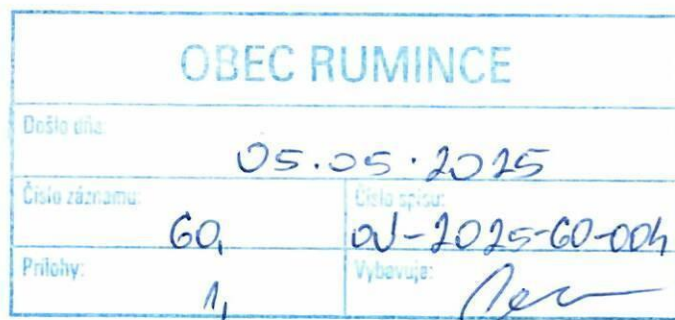 OBEC RUMINCE
Došlo dňa:
05.05.2025
Číslo záznamu:
60,
Číslo spisu:
OU-2025-60-004
Prílohy:
1,
Vybavuje: